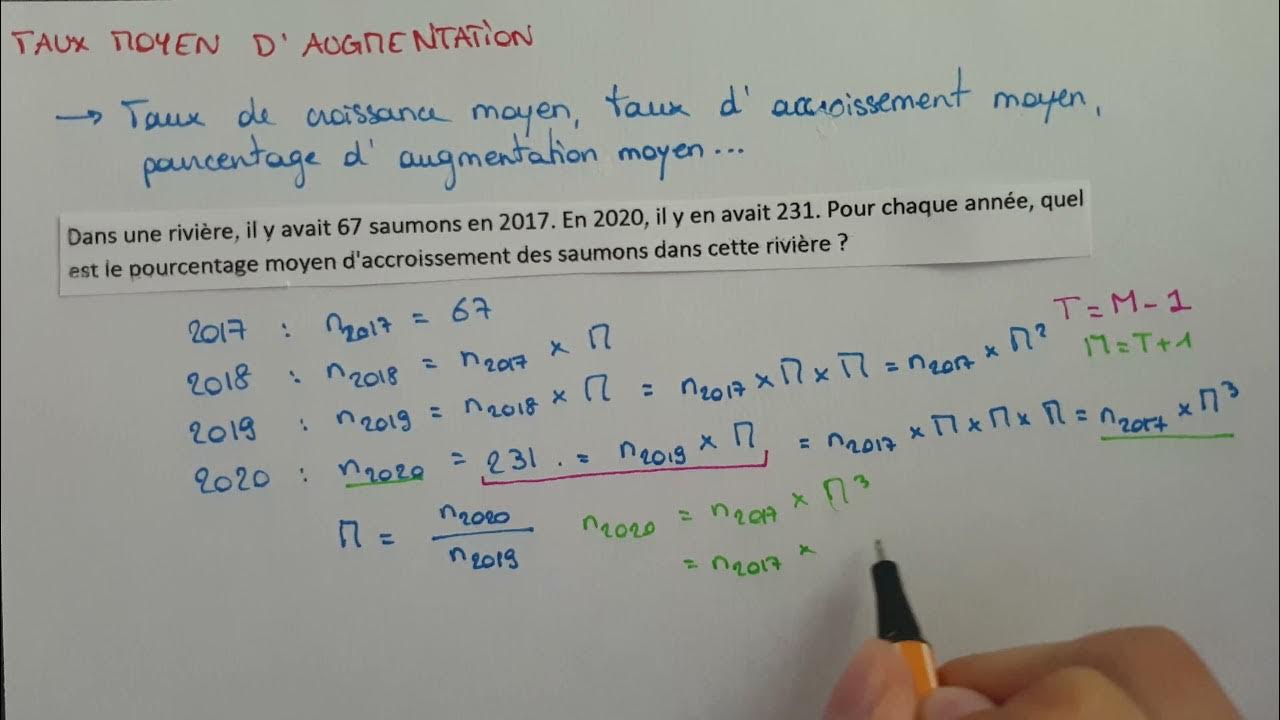 TAUX MOYEN D'AUGMENTATION
→ Taux de croissance moyen, taux d'accroissement moyen,
pourcentage d'augmentation moyen...
Dans une rivière, il y avait 67 saumons en 2017. En 2020, il y en avait 231. Pour chaque année, quel
est le pourcentage moyen d'accroissement des saumons dans cette rivière ?
T = M - 1
M = T + 1
2017 : n₂₀₁₇ = 67
2018 : n₂₀₁₈ = n₂₀₁₇ × M
2019 : n₂₀₁₉ = n₂₀₁₈ × M = n₂₀₁₇ × M × M = n₂₀₁₇ × M²
2020 : n₂₀₂₀ = 231 . = n₂₀₁₉ × M = n₂₀₁₇ × M × M × M = n₂₀₁₇ × M³
M = n₂₀₂₀ / n₂₀₁₉
n₂₀₂₀ = n₂₀₁₇ × M³
= n₂₀₁₇ ×